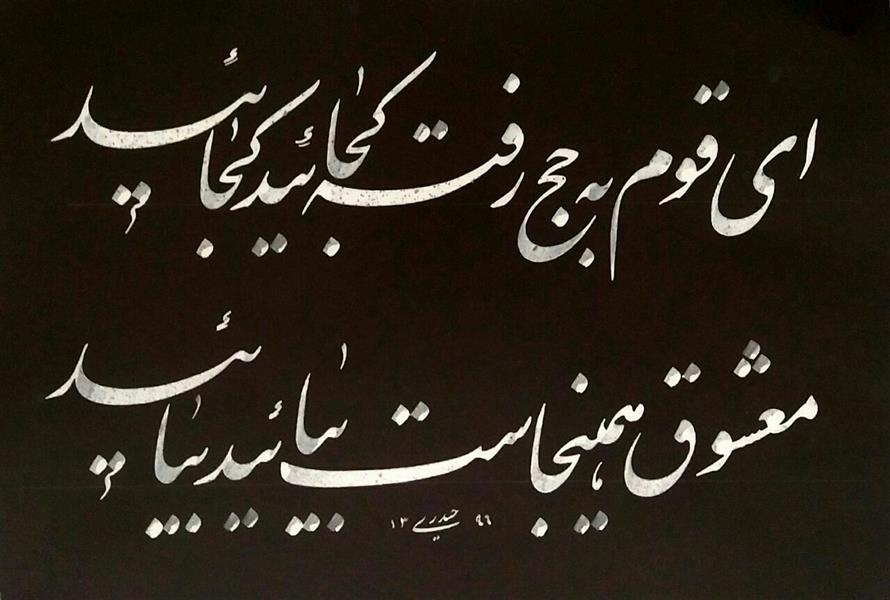 ای قوم به حج رفته کجائید کجائید
معشوق همینجاست بیائید بیائید
حیدری ۱۳۹۶